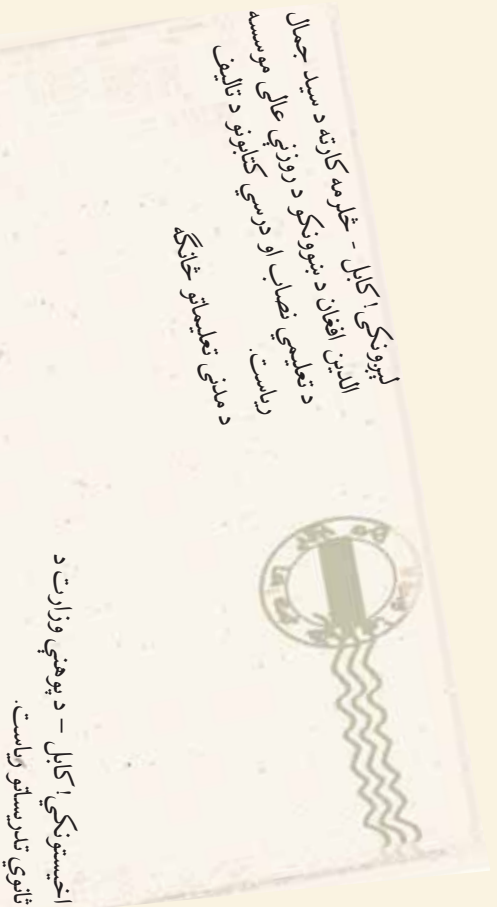 لیږونکی! کابل - څلرمه کارته د سید جمال
الدین افغان د ښوونکو د روزنې عالی موسسه
د تعلیمي نصاب او درسي کتابونو د تالیف
ریاست.
د مدنی تعلیماتو څانګه
اخیستونکي! کابل – د پوهنې وزارت د
ثانوي تدریساتو ریاست.